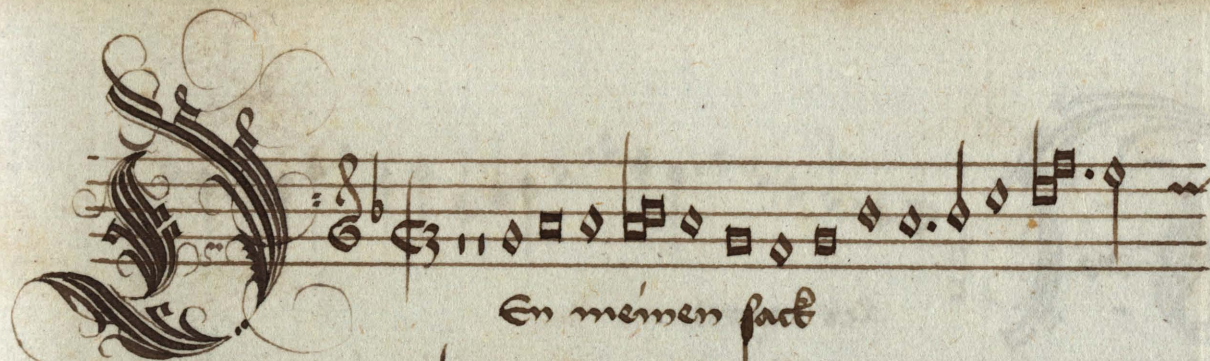 En meinen sack